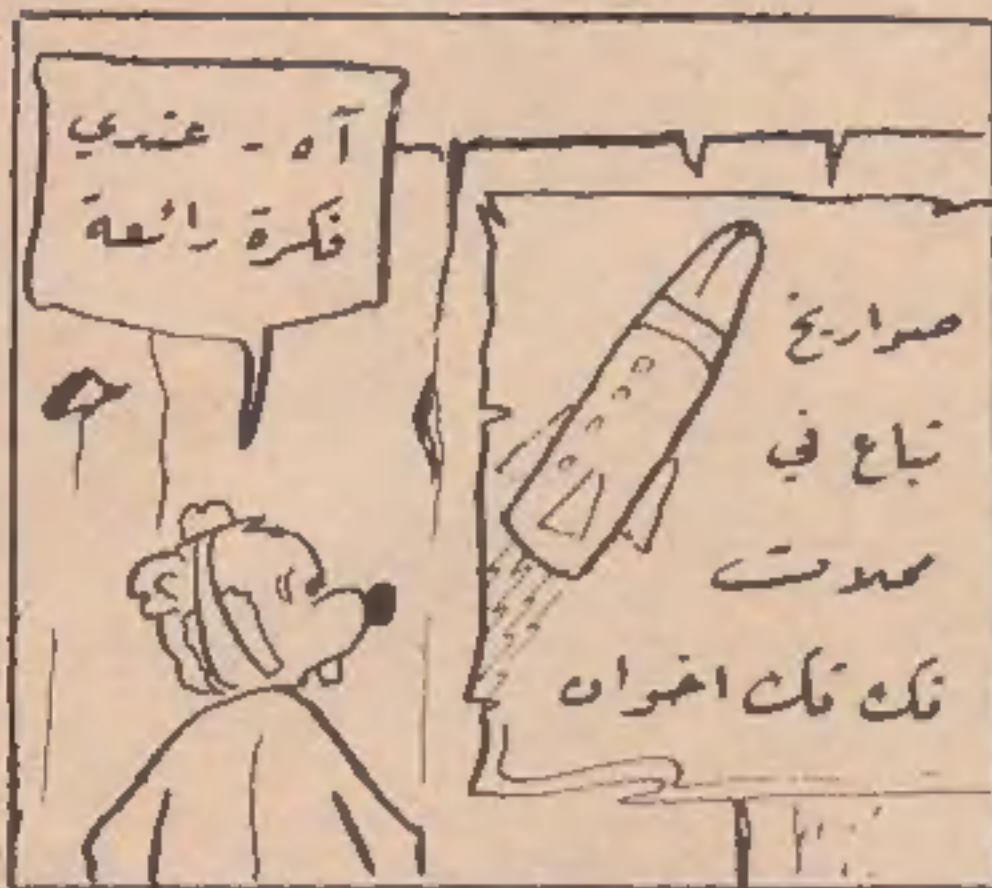 آه - عندي
فكرة رائعة
صواريخ
تباع في
محلات
فك فك اخوان